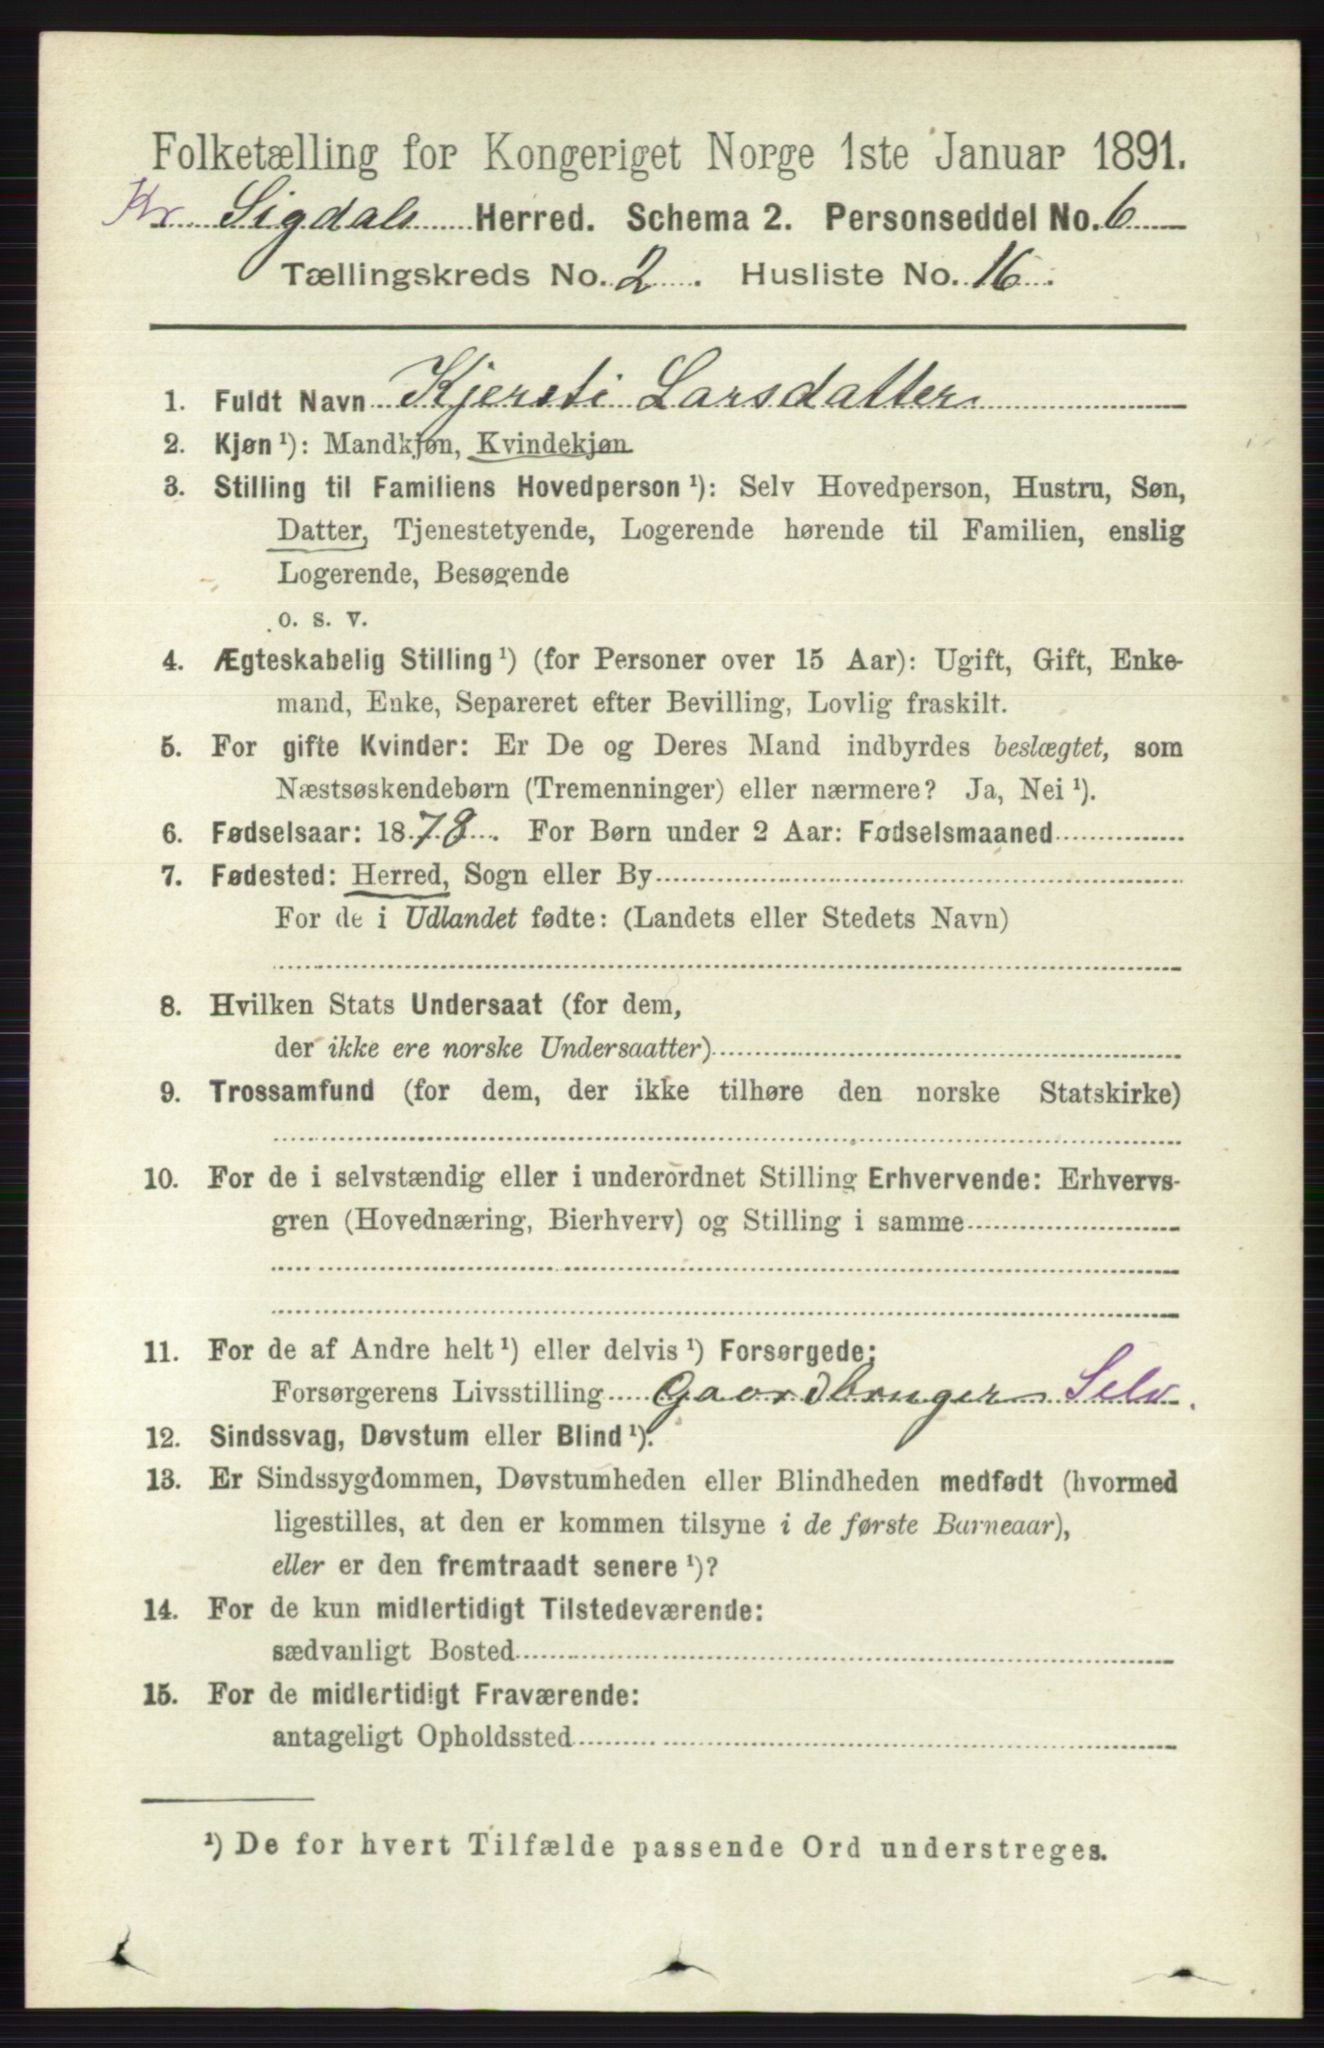 Folketælling for Kongeriget Norge 1ste Januar 1891.
Kr. Sigdals Herred. Schema 2. Personseddel No. 6
Tællingskreds No. 2. Husliste No. 16.
1. Fuldt Navn Kjersti Larsdatter
2. Kjøn¹): Mandkjøn, Kvindekjøn
3. Stilling til Familiens Hovedperson¹): Selv Hovedperson, Hustru, Søn,
Datter, Tjenestetyende, Logerende hørende til Familien, enslig
Logerende, Besøgende
o. s. v.
4. Ægteskabelig Stilling¹) (for Personer over 15 Aar): Ugift, Gift, Enke-
mand, Enke, Separeret efter Bevilling, Lovlig fraskilt.
5. For gifte Kvinder: Er De og Deres Mand indbyrdes beslægtet, som
Næstsøskendebørn (Tremenninger) eller nærmere? Ja, Nei¹).
6. Fødselsaar: 1878. For Børn under 2 Aar: Fødselsmaaned
7. Fødested: Herred, Sogn eller By
For de i Udlandet fødte: (Landets eller Stedets Navn)
8. Hvilken Stats Undersaat (for dem,
der ikke ere norske Undersaatter)
9. Trossamfund (for dem, der ikke tilhøre den norske Statskirke)
10. For de i selvstændig eller i underordnet Stilling Erhvervende: Erhvervs-
gren (Hovednæring, Bierhverv) og Stilling i samme
11. For de af Andre helt¹) eller delvis¹) Forsørgede:
Forsørgerens Livsstilling Gaardbruger Selv.
12. Sindssvag, Døvstum eller Blind¹).
13. Er Sindssygdommen, Døvstumheden eller Blindheden medfødt (hvormed
ligestilles, at den er kommen tilsyne i de første Barneaar),
eller er den fremtraadt senere¹)?
14. For de kun midlertidigt Tilstedeværende:
sædvanligt Bosted
15. For de midlertidigt Fraværende:
antageligt Opholdssted
¹) De for hvert Tilfælde passende Ord understreges.